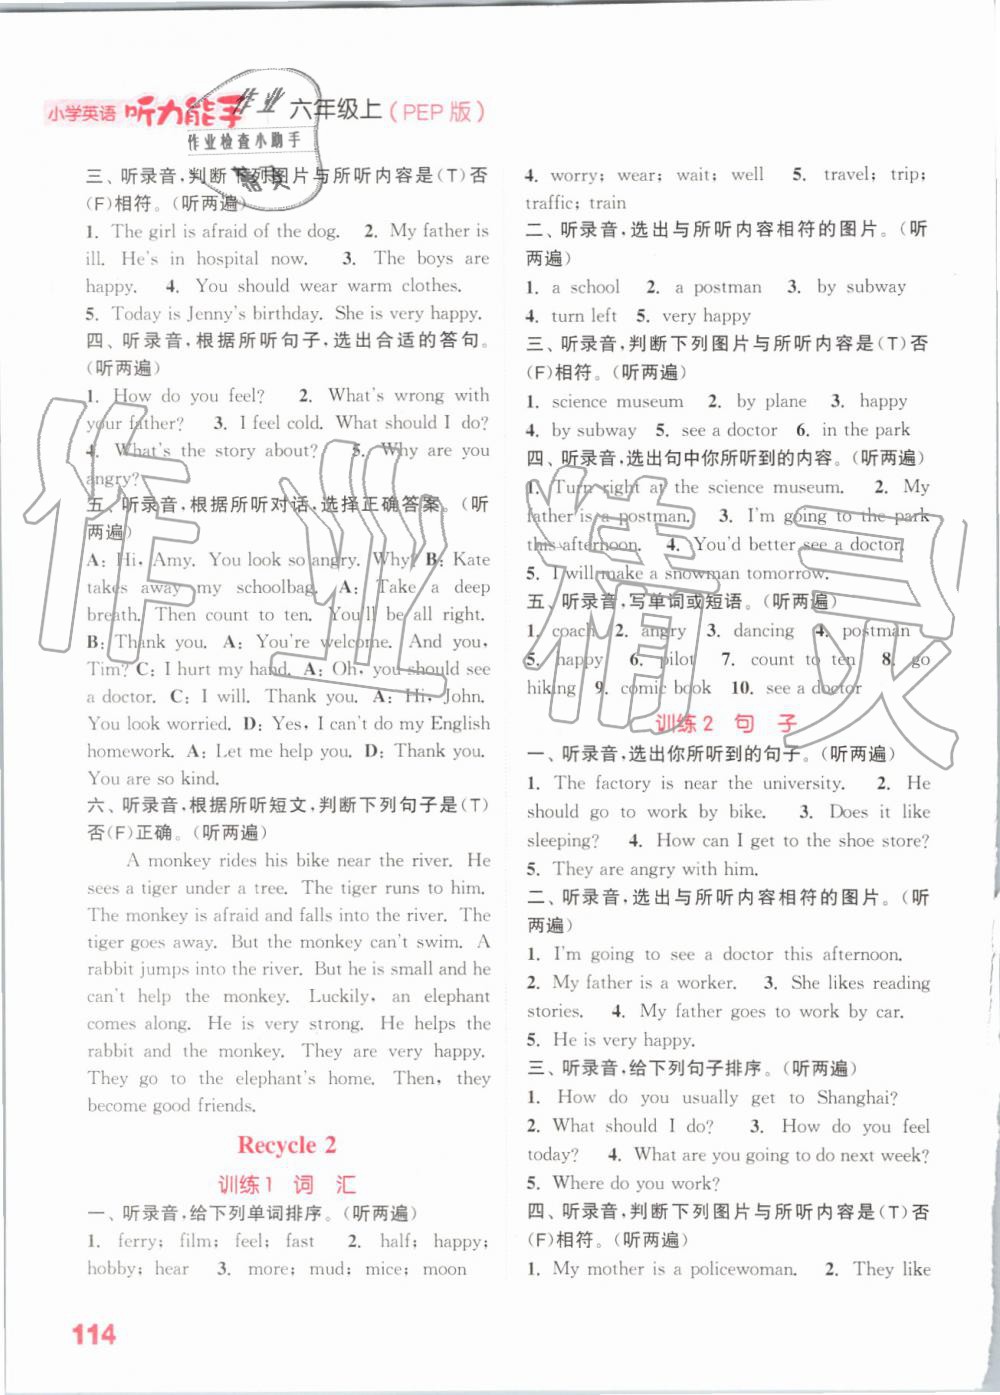 小学英语 听力能手 六年级上(PEP版)
作业
作业检查小助手
精灵
三、听录音,判断下列图片与所听内容是(T)否
(F)相符。(听两遍)
1. The girl is afraid of the dog. 2. My father is
ill. He's in hospital now. 3. The boys are
happy. 4. You should wear warm clothes.
5. Today is Jenny's birthday. She is very happy.
四、听录音,根据所听句子,选出合适的答句。
(听两遍)
1. How do you feel? 2. What's wrong with
your father? 3. I feel cold. What should I do?
4. What's the story about? 5. Why are you
angry?
五、听录音,根据所听对话,选择正确答案。(听
两遍)
A: Hi, Amy. You look so angry. Why? B: Kate
takes away my schoolbag. A: Take a deep
breath. Then count to ten. You'll be all right.
B: Thank you. A: You're welcome. And you,
Tim? C: I hurt my hand. A: Oh, you should see
a doctor. C: I will. Thank you. A: Hi, John.
You look worried. D: Yes, I can't do my English
homework. A: Let me help you. D: Thank you.
You are so kind.
六、听录音,根据所听短文,判断下列句子是(T)
否(F)正确。(听两遍)
A monkey rides his bike near the river. He
sees a tiger under a tree. The tiger runs to him.
The monkey is afraid and falls into the river. The
tiger goes away. But the monkey can't swim. A
rabbit jumps into the river. But he is small and he
can't help the monkey. Luckily, an elephant
comes along. He is very strong. He helps the
rabbit and the monkey. They are very happy.
They go to the elephant's home. Then, they
become good friends.
Recycle 2
训练1 词 汇
一、听录音,给下列单词排序。(听两遍)
1. ferry; film; feel; fast 2. half; happy;
hobby; hear 3. more; mud; mice; moon
4. worry; wear; wait; well 5. travel; trip;
traffic; train
二、听录音,选出与所听内容相符的图片。(听
两遍)
1. a school 2. a postman 3. by subway
4. turn left 5. very happy
三、听录音,判断下列图片与所听内容是(T)否
(F)相符。(听两遍)
1. science museum 2. by plane 3. happy
4. by subway 5. see a doctor 6. in the park
四、听录音,选出句中你所听到的内容。(听两遍)
1. Turn right at the science museum. 2. My
father is a postman. 3. I'm going to the park
this afternoon. 4. You'd better see a doctor.
5. I will make a snowman tomorrow.
五、听录音,写单词或短语。(听两遍)
1. coach 2. angry 3. dancing 4. postman
5. happy 6. pilot 7. count to ten 8. go
hiking 9. comic book 10. see a doctor
训练2 句 子
一、听录音,选出你所听到的句子。(听两遍)
1. The factory is near the university. 2. He
should go to work by bike. 3. Does it like
sleeping? 4. How can I get to the shoe store?
5. They are angry with him.
二、听录音,选出与所听内容相符的图片。(听
两遍)
1. I'm going to see a doctor this afternoon.
2. My father is a worker. 3. She likes reading
stories. 4. My father goes to work by car.
5. He is very happy.
三、听录音,给下列句子排序。(听两遍)
1. How do you usually get to Shanghai?
2. What should I do? 3. How do you feel
today? 4. What are you going to do next week?
5. Where do you work?
四、听录音,判断下列图片与所听内容是(T)否
(F)相符。(听两遍)
1. My mother is a policewoman. 2. They like
114
作业精灵